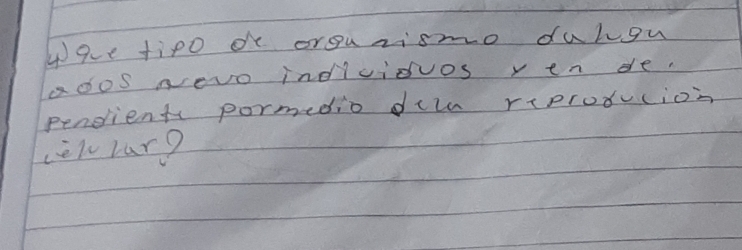 4) que tipo de orguaismo duhgu
ados nevo individuos y en de.
pendiente pormedio dela reproducion
célular?